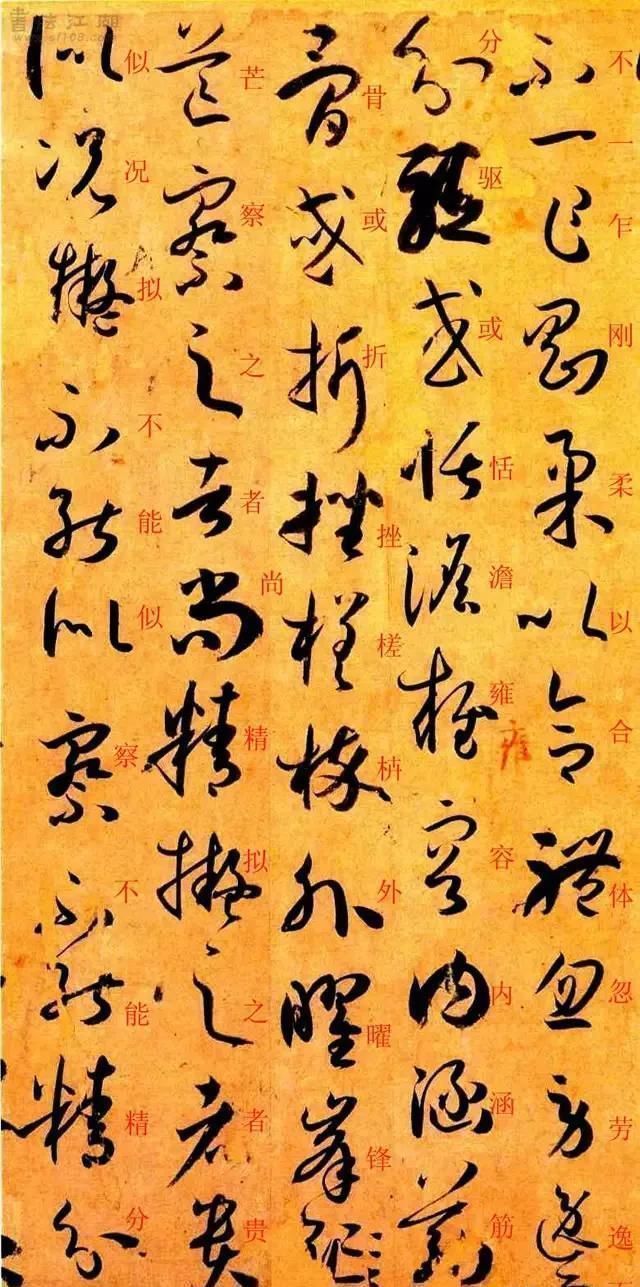 書法江湖
www.sf108.com
不一乍刚柔以合体忽劳逸
分驱或恬澹雍容内涵筋
骨或折挫槎枿外曜锋
芒察之者尚精拟之者贵
似况拟不能似察不能精分